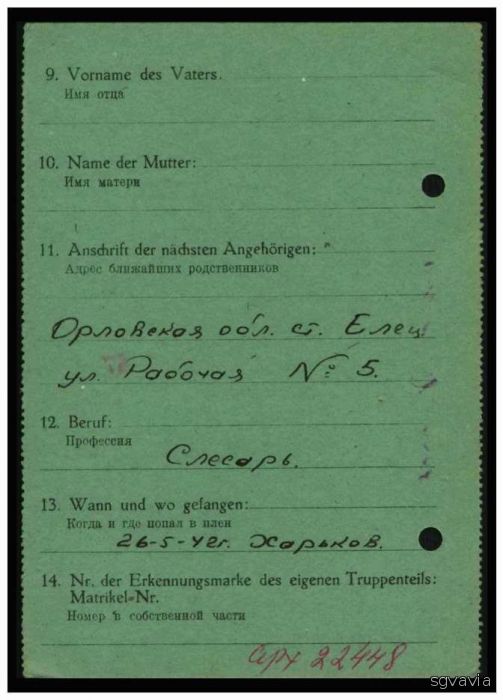 9. Vorname des Vaters.
Имя отца
10. Name der Mutter:
Имя матери
11. Anschrift der nächsten Angehörigen:
Адрес ближайших родственников
Орловская обл. ст. Елец
ул. Рабочая № 5.
12. Beruf:
Профессия
Слесарь.
13. Wann und wo gefangen:
Когда и где попал в плен
26-5-42г. Харьков.
14. Nr. der Erkennungsmarke des eigenen Truppenteils:
Matrikel-Nr.
Номер в собственной части
арх 22448
sgvavia